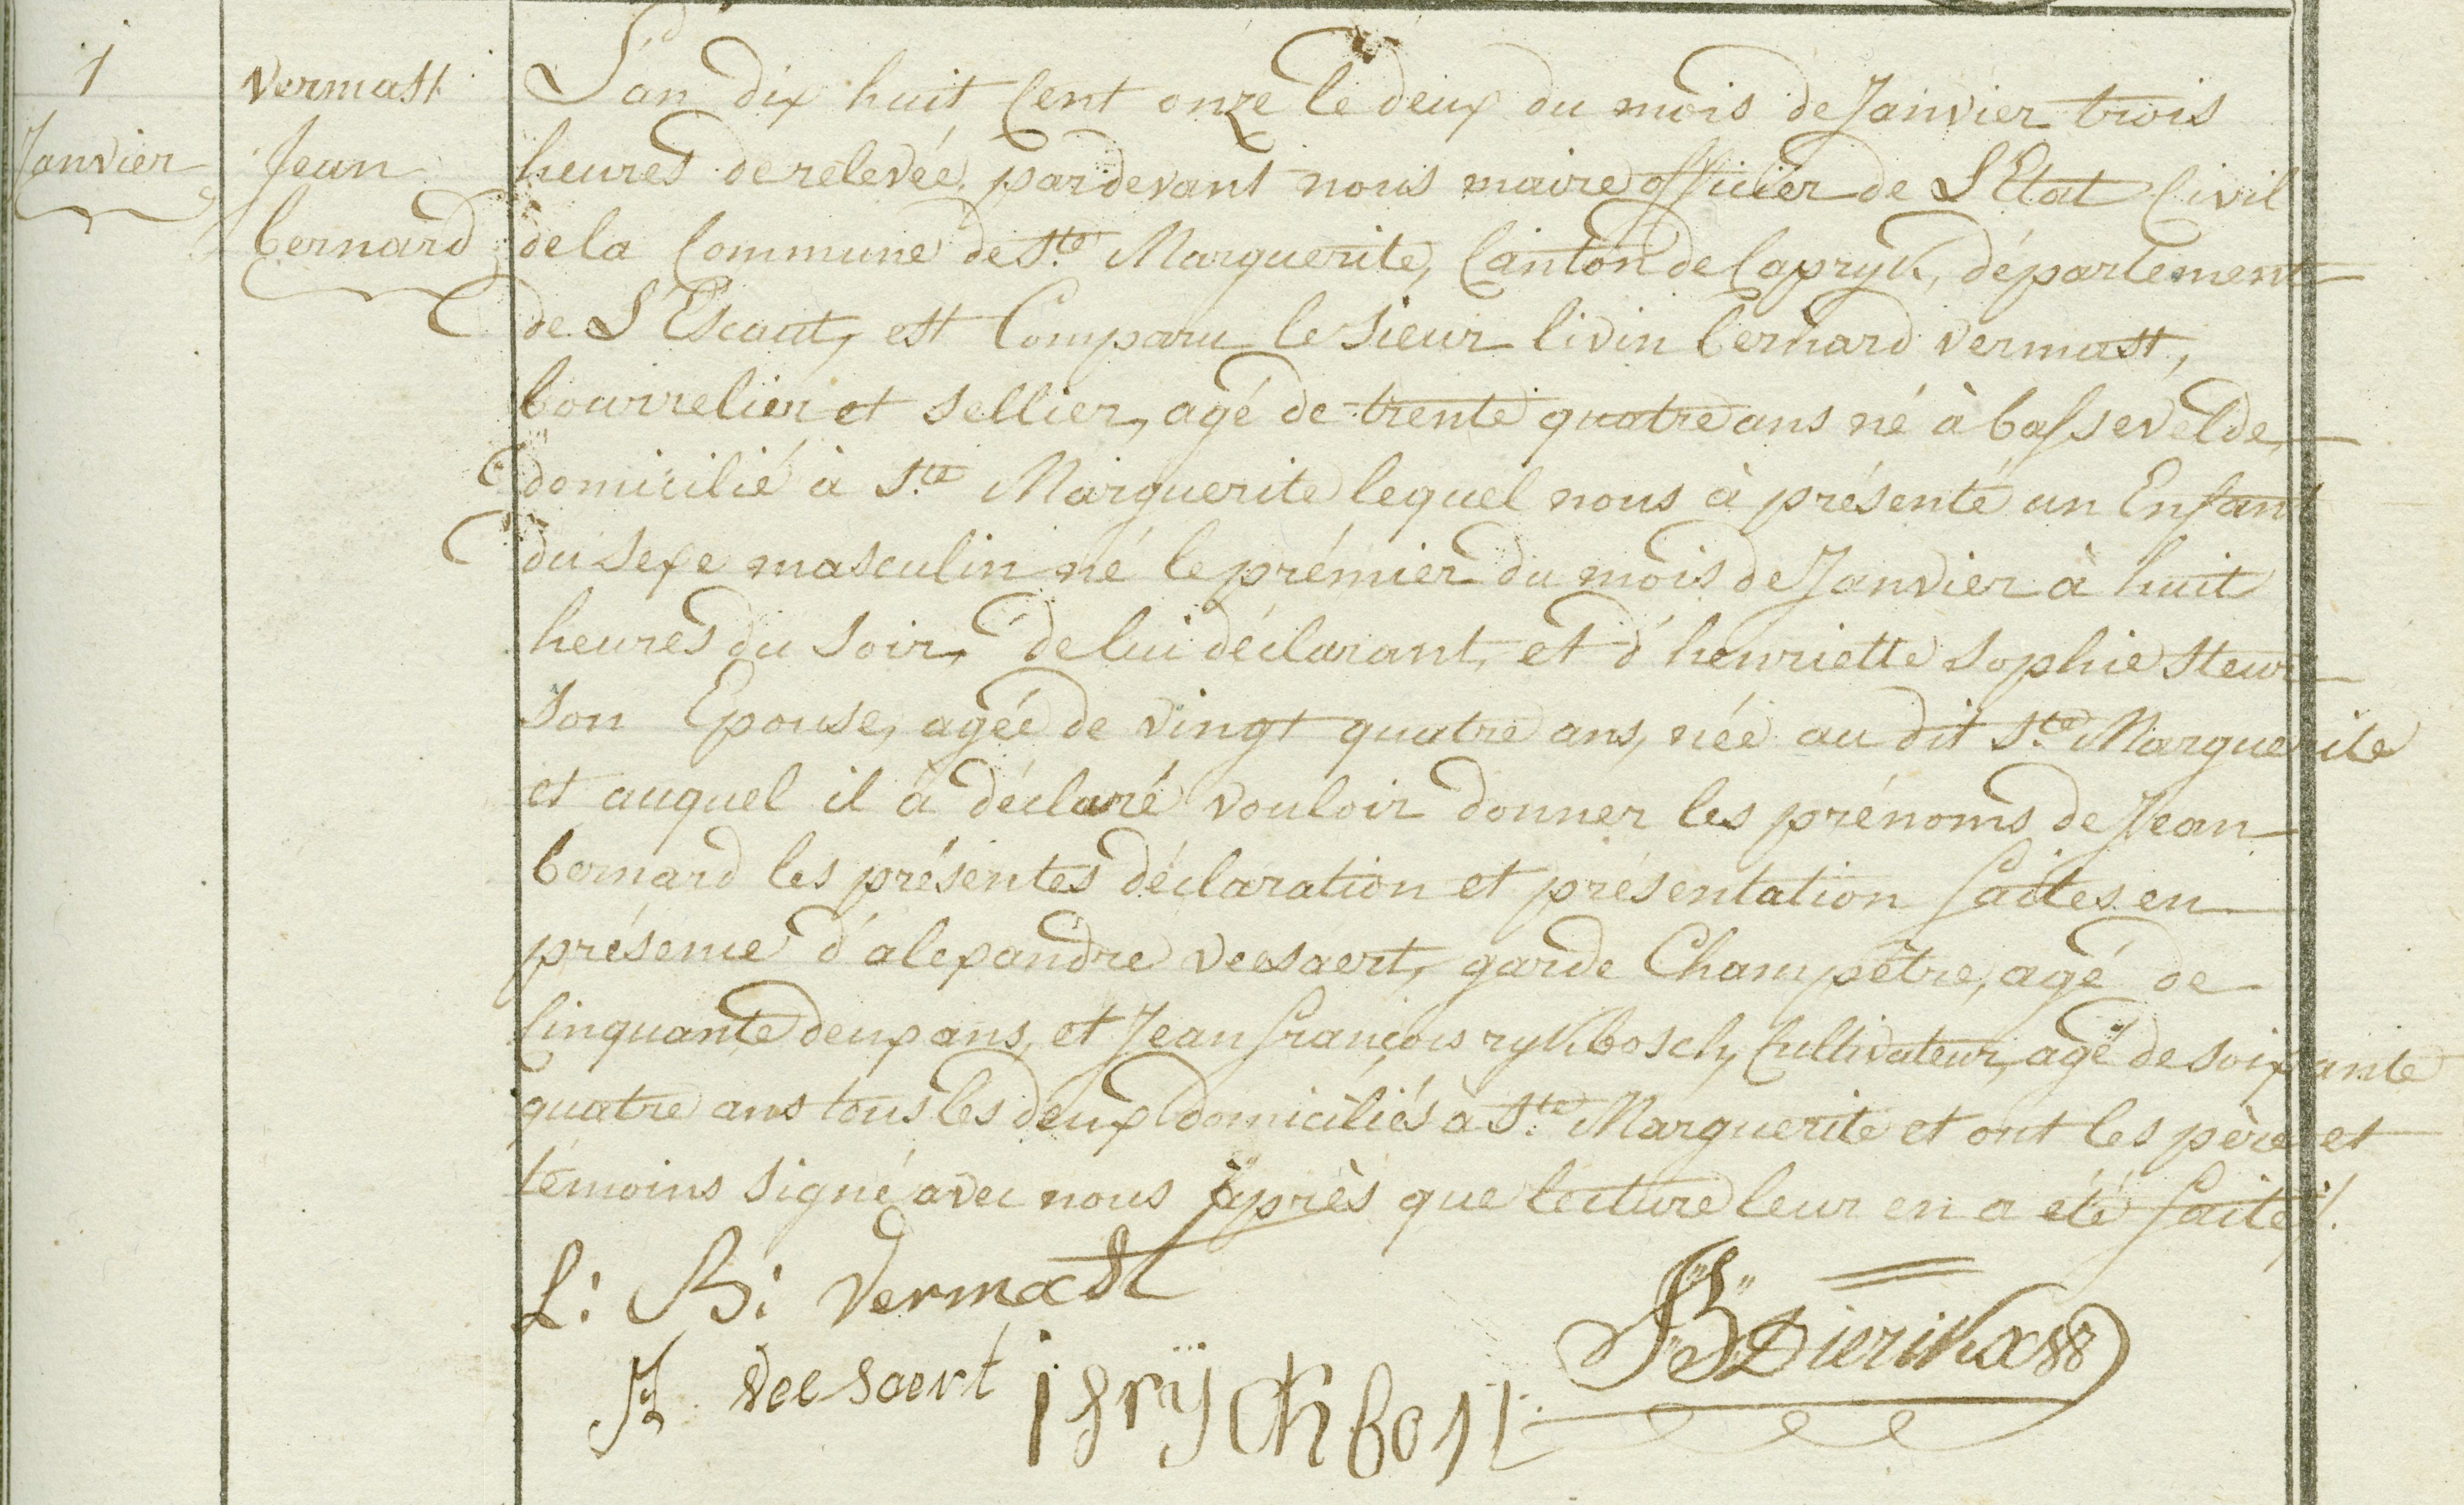 1
Janvier
vermast
Jean
bernard
L'an dix huit Cent onze le deux du mois de Janvier trois
heures de relevée, pardevant nous maire officier de L'Etat Civil
de la Commune de Ste Marguerite, Canton de Capryk, département
de L'Escaut, est Comparu le sieur livin bernard vermast,
bourrelier et sellier, agé de trente quatre ans né à bassevelde,
domicilié à Ste Marguerite lequel nous à présenté un Enfant
du sexe masculin né le prémier du mois de Janvier à huit
heures du soir, de lui déclarant, et d'henriette sophie steur
son Epouse, agée de vingt quatre ans, née au dit Ste Marguerite
et auquel il à déclaré vouloir donner les prénoms de Jean
bernard les présentes déclaration et présentation faites en
présence d'alexandre veesaert, garde Champêtre, agé de
Cinquante deux ans, et Jean françois rykbosch, Cultivateur, agé de soixante
quatre ans tous les deux domiciliés à Ste Marguerite et ont les père et
témoins signé avec nous après que lecture leur en a été faite /.
L: B: vermast
veesaert
j f rÿckbost
Dierikx